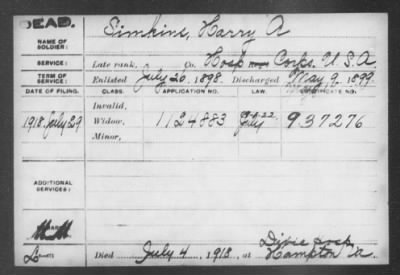 DEAD.
NAME OF SOLDIER: Simkins, Harry A
SERVICE: Late rank, Co. Hosp Corps. U.S.A
TERM OF SERVICE: Enlisted July 26. 1898. Discharged May 9. 1899
DATE OF FILING. CLASS. APPLICATION NO. LAW. CERTIFICATE NO.
Invalid,
1918. July 29 Widow, 1124883 937276
Minor,
ADDITIONAL SERVICES:
Died July 4, 1918, at Dixie Hosp
Hampton Va.